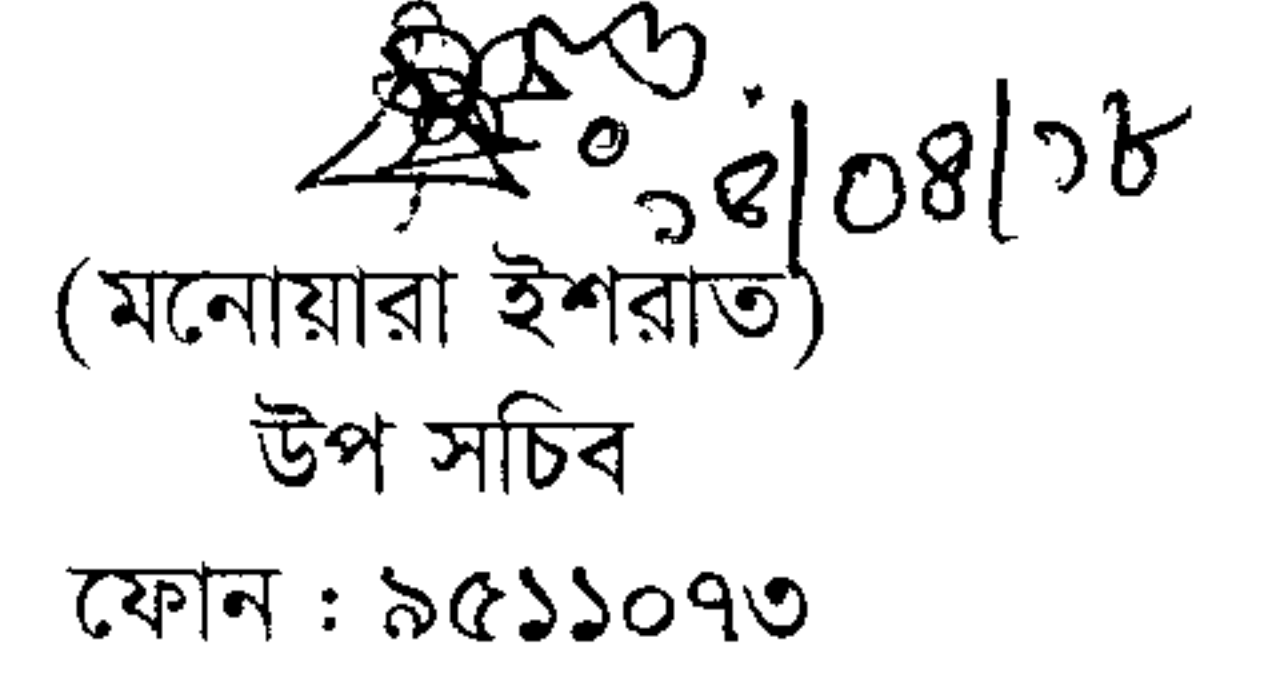 ১৪/০৪/১৮
(মনোয়ারা ইশরাত)
উপ সচিব
ফোন : ৯৫১১০৭৩